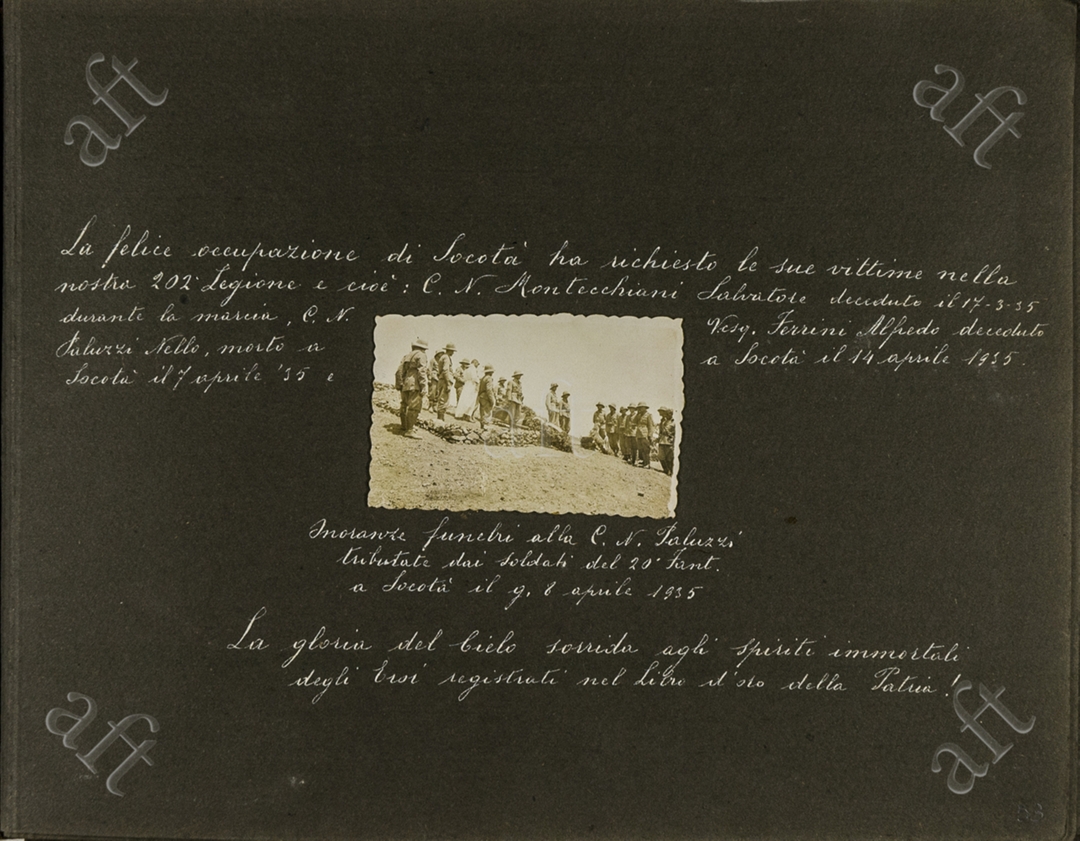 La felice occupazione di Socotà ha richiesto le sue vittime nella
nostra 202ª Legione e cioè: C. N. Montecchiani Salvatore deceduto il 17-3-35
durante la marcia, C. N.
Paluzzi Nello, morto a
Socotà il 7 aprile '35 e
Vcsq. Ferrini Alfredo deceduto
a Socotà il 14 aprile 1935.
Onoranze funebri alla C. N. Paluzzi
tributate dai soldati del 20° Fant.
a Socotà il g. 8 aprile 1935
La gloria del Cielo sorrida agli spiriti immortali
degli Eroi registrati nel Libro d'oro della Patria!
aft
aft
aft
aft